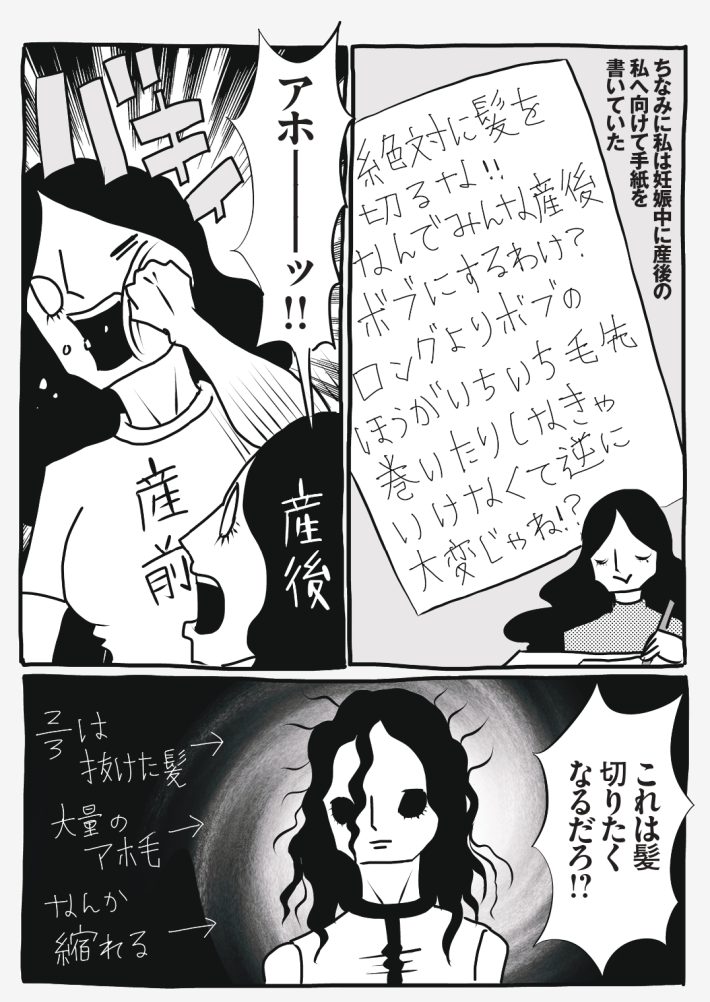 ちなみに私は妊娠中に産後の
私へ向けて手紙を
書いていた
絶対に髪を
切るな!!
なんでみんな産後
ボブにするわけ?
ロングよりボブの
ほうがいちいち毛先
巻いたりしなきゃ
いけなくて逆に
大変じゃね!?
アホーーッ!!
バキィ
産前
産後
これは髪
切りたく
なるだろ!?
2/3は
抜けた髪→
大量の
アホ毛→
なんか
縮れる→